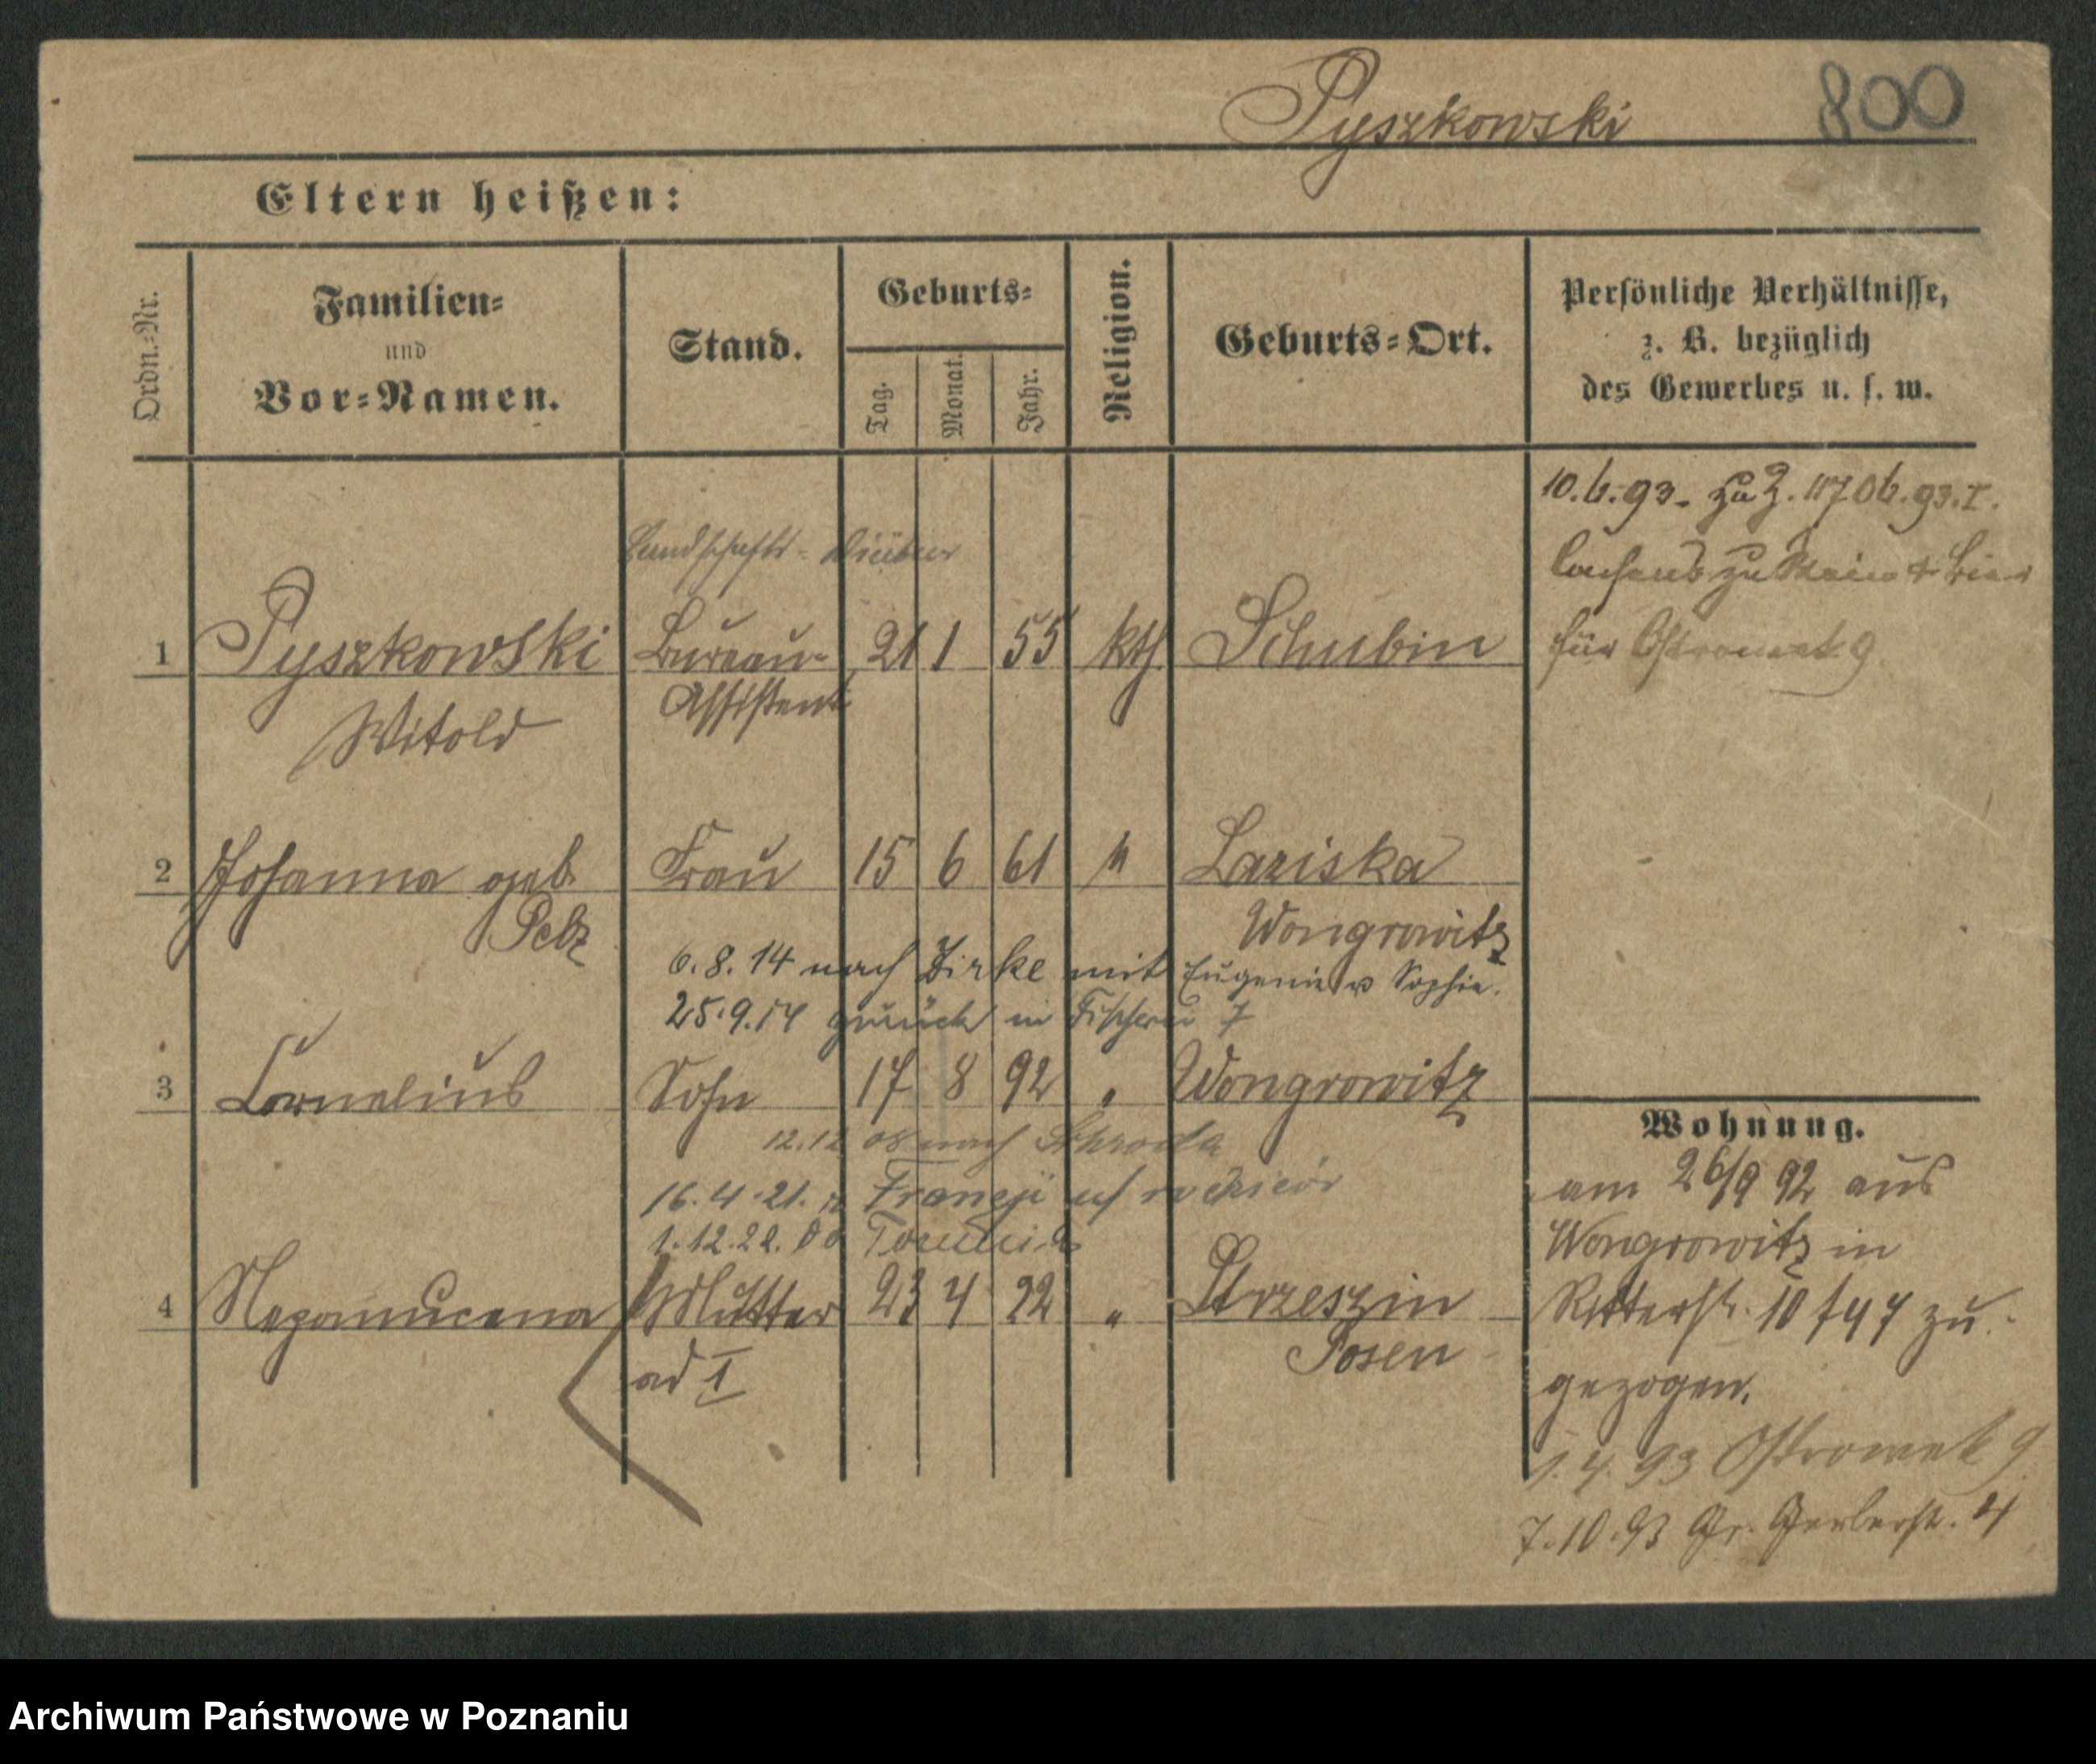 Pyszkowski 800
Eltern heißen:
Ordn.-Nr. Familien- und Vor-Namen. Stand. Geburts- Tag. Monat. Jahr. Religion. Geburts-Ort. Persönliche Verhältnisse, z. B. bezüglich des Gewerbes u. s. w.
10.6.93. zu
Landschafts-
für Ostrowek 9
1 Pyszkowski Bureau- 21 1 55 kth. Schubin
Witold Assistent
2 Johanna geb. Frau 15 6 61 " Laziska
Pelz Wongrowitz
6.8.14 nach Zirke mit Eugenie u Sophie.
25.9.14 zurück in Fischerei 7
3 Cornelius Sohn 17 8 92 " Wongrowitz
12.12.08 nach Schroda
16.4.21. z Francji
1.12.22. do
4 Nepomucena Mutter 23 4 22 " Strzeszin
ad I Posen
Wohnung.
am 26/9 92 aus
Wongrowitz in
Ritterstr. 10 zu-
gezogen.
1.4.93 Ostrowek 9
7.10.93 Gr. Gerberstr. 4
Archiwum Państwowe w Poznaniu